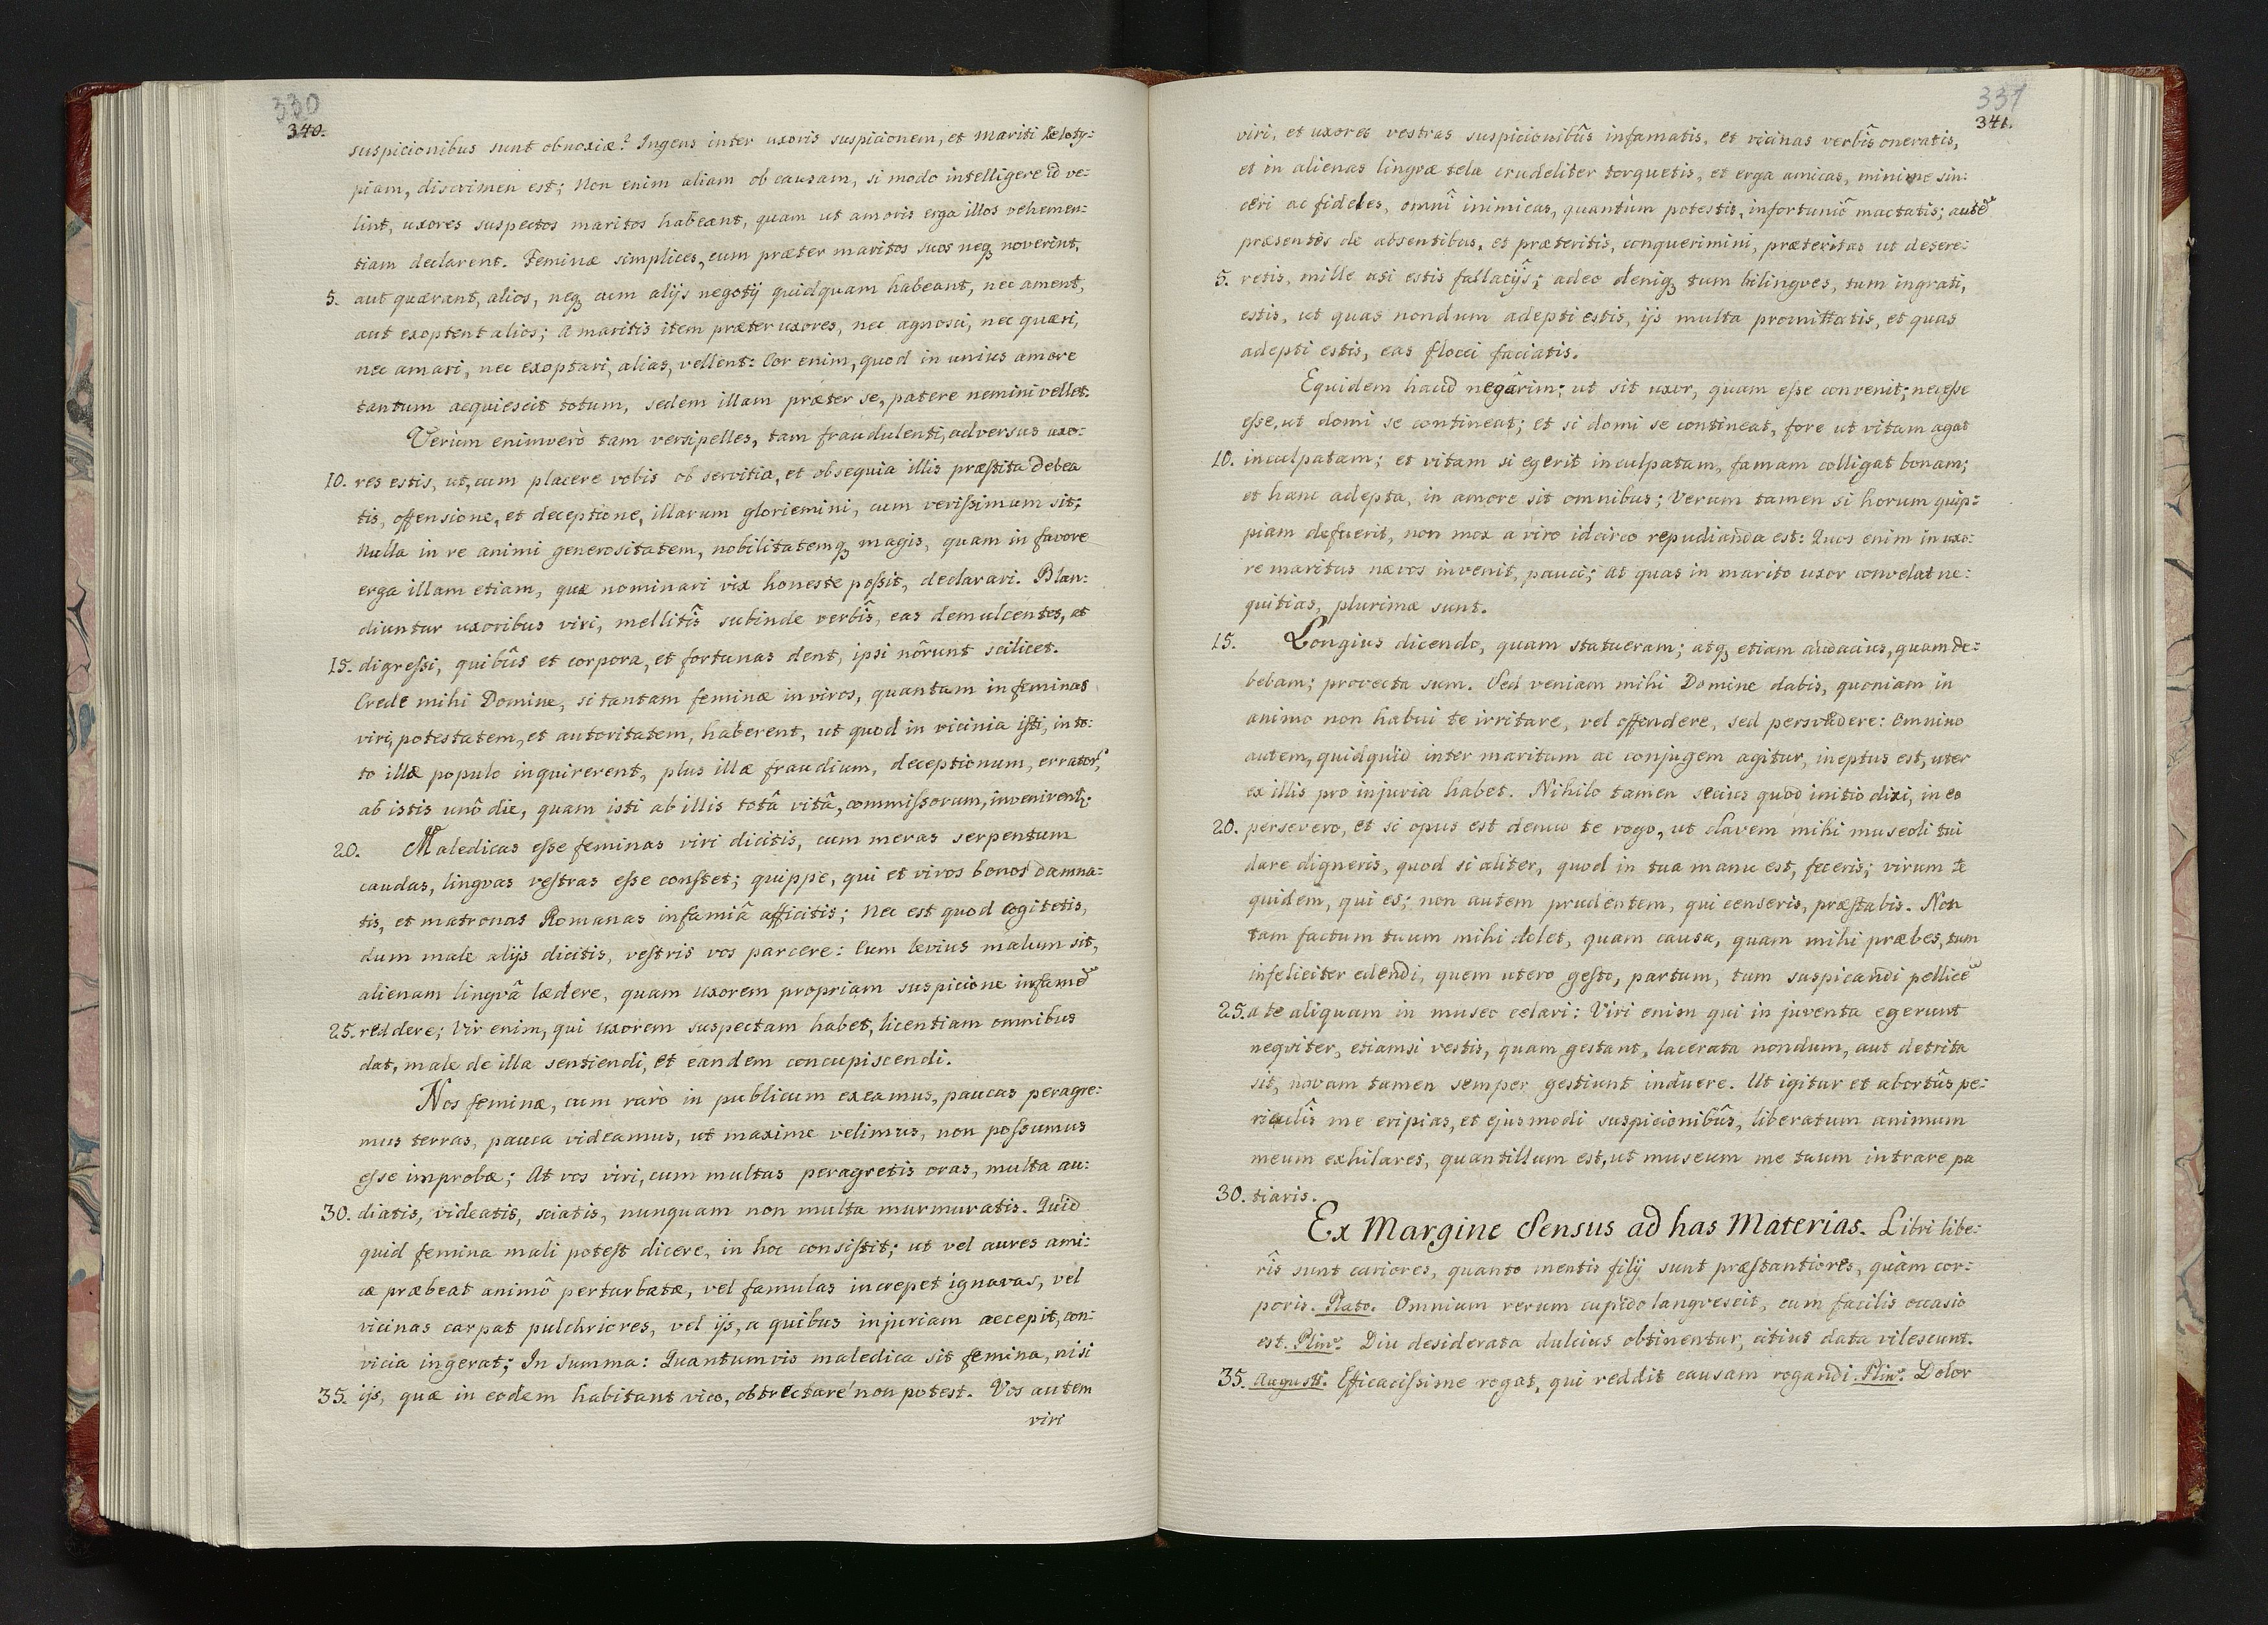 330
340.
suspicionibus sunt obnoxiæ? Ingens inter uxoris suspicionem, et mariti Zeloty:
piam, discrimen est; Non enim aliam ob causam, si modo intelligere id ve:
lint, uxores suspectos maritos habeant, quam ut amoris erga illos vehemen:
tiam declarent. Feminæ simplices, cum præter maritos suos neq noverint,
5. aut quærant, alios, neq cum alijs negotij quidquam habeant, nec ament,
aut exoptent alios; a maritis item præter uxores, nec agnosci, nec quæri,
nec amari, nec exoptari, alias, vellent: Cor enim, quod in unius amore
tantum acquiescit totum, sedem illam præter se, patere nemini vellet.
Verùm enimverò tam versipelles, tam fraudulenti, adversus uxo:
10. res estis, ut, cum placere vobis ob servitia, et obsequia illis præstita debea
tis, offensione, et deceptione, illarum gloriemini, cum verissimum sit:
Nulla in re animi generositatem, nobilitatemq magis, quam in favore
erga illam etiam, quæ nominari vix honeste possit, declarari. Blan:
diuntur uxoribus viri, mellitîs subinde verbîs, eas demulcentes, at
15. digressi, quibûs et corpora, et fortunas dent, ipsi nôrunt scilicet.
Crede mihi Domine, si tantam feminæ in viros, quantam in feminas
viri, potestatem, et autoritatem, haberent, ut quod in vicinia isti, in to:
to illæ populo inquirerent, plus illæ fraudium, deceptionum, errator,
ab istis unô die, quam isti ab illis totâ vitâ, commissorum, invenirent.
20. Maledicas esse feminas viri dicitis, cum meras serpentum
caudas, lingvas vestras esse constet; quippe, qui et viros bonos damna:
tis, et matronas Romanas infamiâ afficitis; Nec est quod cogitetis,
dum male alijs dicitis, vestris vos parcere: Cum levius malum sit,
alienam lingvâ lædere, quam uxorem propriam suspicione infamẽ
25. reddere; Vir enim, qui uxorem suspectam habet, licentiam omnibus
dat, male de illa sentiendi, et eandem concupiscendi.
Nos feminæ, cum rarò in publicum exeamus, paucas peragre:
mus terras, pauca videamus, ut maxime velimus, non possumus
esse improbæ; At vos viri, cum multas peragretis oras, multa au:
30. diatis, videatis, sciatis, nunquam non multa murmuratis. Quid
quid femina mali potest dicere, in hoc consistit; ut vel aures ami:
cæ præbeat animô perturbatæ, vel famulas increpet ignavas, vel
vicinas carpat pulchriores, vel ijs, a quibus injuriam accepit, con:
vicia ingerat; In summa: Quantumvis maledica sit femina, nisi
35. ijs, quæ in eodem habitant vico, obtrectare non potest. Vos autem
viri
331
341.
viri, et uxores vestras suspicionibûs infamatis, et vicinas verbîs oneratis,
et in alienas lingvæ tela crudeliter torquetis, et erga amicas, minime sin:
ceri ac fideles, omnî inimicas, quantùm potestis, infortuniô mactatis; autẽ
præsentes de absentibus, et præteritis, conquerimini, præteritas ut desere:
5. retis, mille usi estis fallacijs; adeo deniq tum bilingves, tum ingrati,
estis, ut quas nondum adepti estis, ijs multa promittatis, et quas
adepti estis, eas flocci faciatis.
Equidem haud negârim; ut sit uxor, quam esse convenit; necesse
esse, ut domi se contineat; et si domi se contineat, fore ut vitam agat
10. inculpatam; et vitam si egerit inculpatam, famam colligat bonam;
et hanc adepta, in amore sit omnibus; Verum tamen si horum quip:
piam defuerit, non mox a viro idcirco repudianda est: Quos enim in uxo:
re maritus nævos invenit, pauci; At quas in marito uxor convelat ne:
quitias, plurimæ sunt.
15. Longius dicendo, quam statueram; atq etiam audacius, quam de:
bebam; provecta sum. Sed veniam mihi Domine dabis, quoniam in
animo non habui te irritare, vel offendere, sed persvadere: Omnino
autem, quidquid inter maritum ac conjugem agitur, ineptus est, uter
ex illis pro injuria habet. Nihilo tamen secius quod initio dixi, in eo
20. persevero, et si opus est denuo te rogo, ut clavem mihi museoli tui
dare digneris, quod si aliter, quod in tua manu est, feceris; virum te
quidem, qui es; non autem prudentem, qui censeris, præstabis. Non
tam factum tuum mihi dolet, quam causa, quam mihi præbes, tum
infeliciter edendi, quem utero gesto, partum, tum suspicandi pellicẽ
25. a te aliquam in museo celari: Viri enim qui in juventa egerunt
neqviter, etiamsi vestis, quam gestant, lacerata nondum, aut detrita
sit, novam tamen semper gestiunt induere. Ut igitur et abortûs pe:
riculîs me eripias, et ejusmodi suspicionibûs, liberatum animum
meum exhilares, quantillum est, ut museum me tuum intrare pa
30. tiaris.
Ex Margine Sensus ad has Materias. Libri libe:
rîs sunt cariores, quanto mentis filij sunt præstantiores, quàm cor:
poris. Plato. Omnium rerum cupido langvescit, cum facilis occasio
est. Plin: Diu desiderata dulcius obtinentur, citius data vilescunt.
35. August: Efficacissime rogat, qui reddit causam rogandi. Plin: Dolor